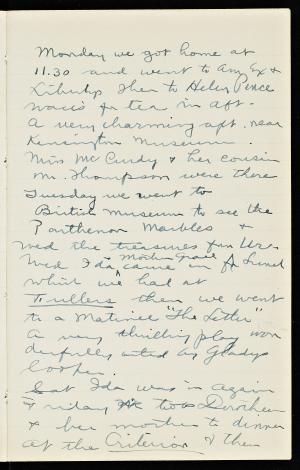 Monday we got home at
11.30 and went to Am, Ex &
then to Helen Pence
for tea in aft.
A very charming aft. near
Kensington Museum.
Miss Mc Curdy & her cousin
Mr. Thompson were there
Tuesday we went to
British museum to see the
Parthenon Marbles &
the treasures from Ur.
Wed Ida came in for Lunch
which we had at
Trullers then we went
to a Matinee "The Letter"
A very thrilling play won
derfully acted by Gladys
Cooper.
Sat Ida was in again
Friday
& her mother to dinner
at the Criterion & then